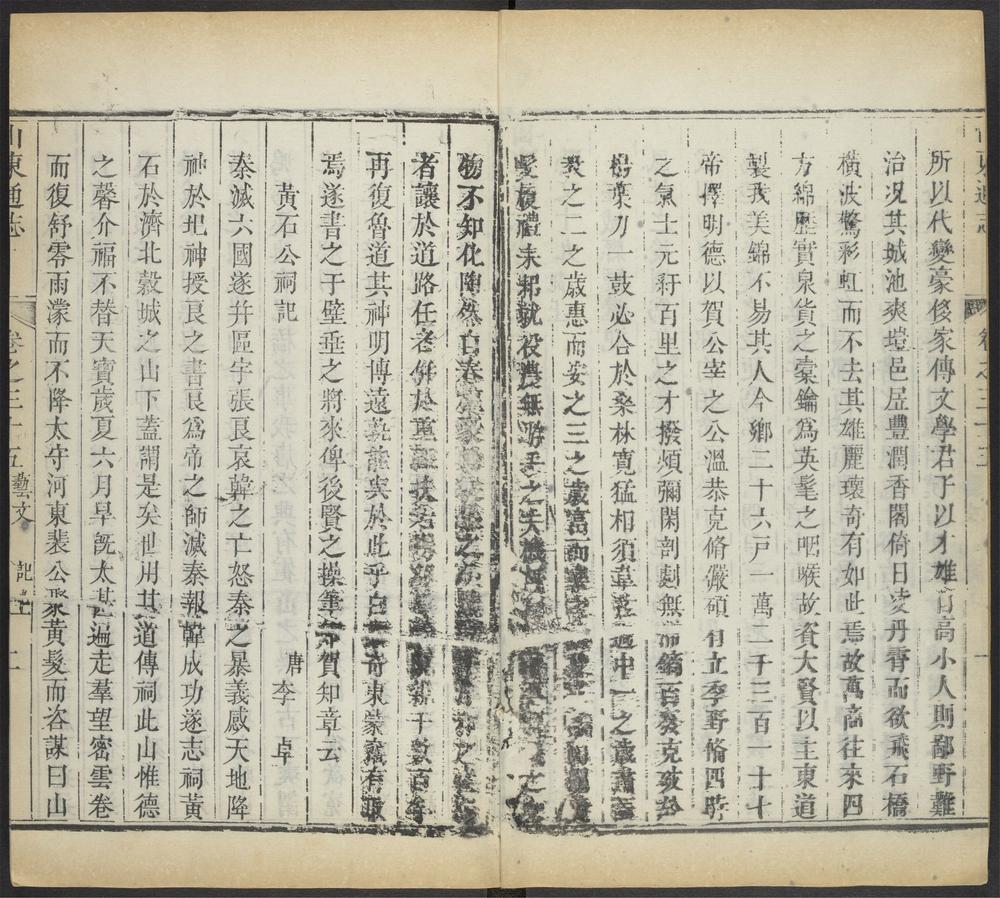 所以代變豪俊家傳文學君子以才雄自高小人則鄙野難
治况其城池爽塏邑居豐潤香閣倚日凌丹霄而欲飛石橋
橫波驚彩虹而不去其雄麗瓌奇有如此焉故萬商往來四
方綿歷實泉貨之橐鑰為英髦之咽喉故資大賢以主東道
製我美錦不易其人今鄉二十六戸一萬二千三百一十十
帝擇明德以賀公宰之公溫恭克脩儼碩有立季野備四時
之氣士元猶百里之才撥煩彌閑剖劇無滯鏑百發克破於
楊葉刀一鼓必合於桑林寛猛相須韋弦適中一之歳肅而
教之二之歳惠而安之三之歳富而
髪履禮耒耜就役農無游手之夫機
物不知化陶然自春
者讓於道路任老併於重
再復魯道其神明博遠孰能與於此乎白
奇東蒙竊有聽
焉遂書之于壁垂之將來俾後賢之操筆
賀知章云
黃石公祠記
唐李卓
秦滅六國遂并區宇張良哀韓之亡怒秦之暴義感天地降
神於圯神授良之書良為帝之師滅秦報韓成功遂志祠黃
石於濟北穀城之山下蓋謂是矣世用其道傳祠此山惟德
之馨介福不替天寳歲夏六月旱旣太甚遍走羣望密雲卷
而復舒零雨濛而不降太守河東裴公聚黃髮而咨謀曰山
山東通志
卷之三十五藝文
記
二